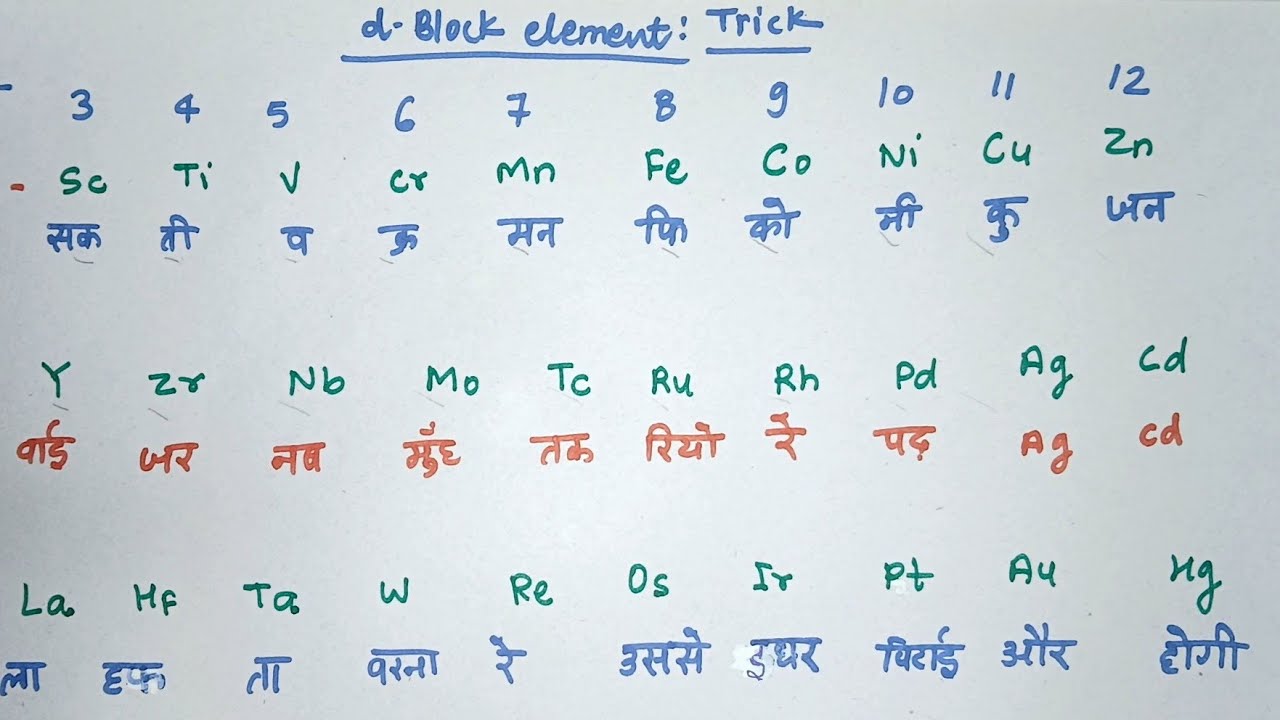 d-Block element: Trick
3 4 5 6 7 8 9 10 11 12
- Sc Ti V Cr Mn Fe Co Ni Cu Zn
सक ती व क्र मन फि को नी कु जन
Y Zr Nb Mo Tc Ru Rh Pd Ag Cd
वाई जर नब मुँह तक रियो रे पढ़ Ag Cd
La Hf Ta W Re Os Ir Pt Au Hg
ला हफ ता वरना रे उससे इधर पिटाई और होगी